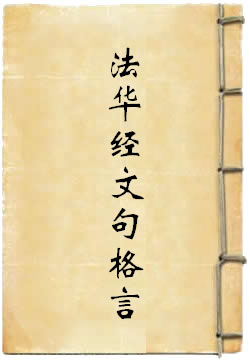 法华经文句格言